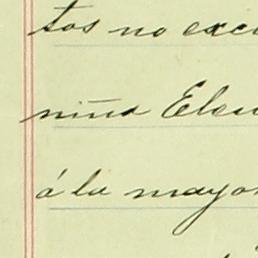 tos no exce
niña Elea
á la mayor